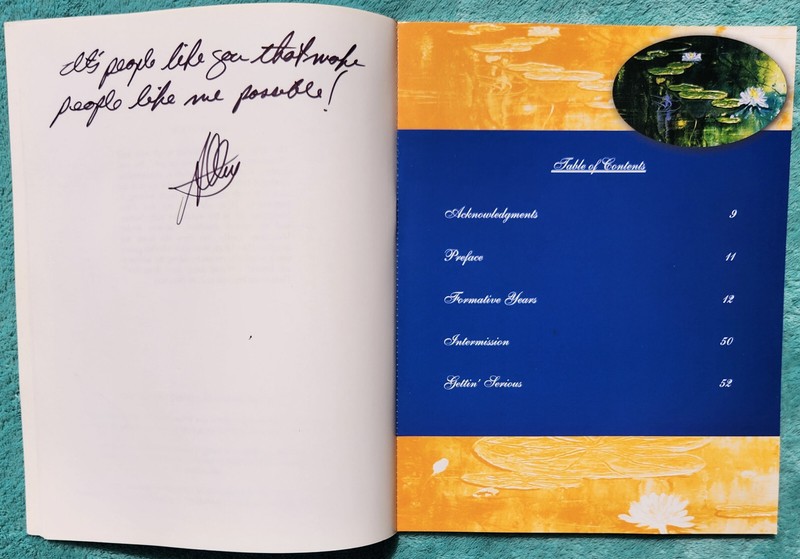 It's people like you that make
people like me possible!
Table of Contents
Acknowledgments 9
Preface 11
Formative Years 12
Intermission 50
Gettin' Serious 52